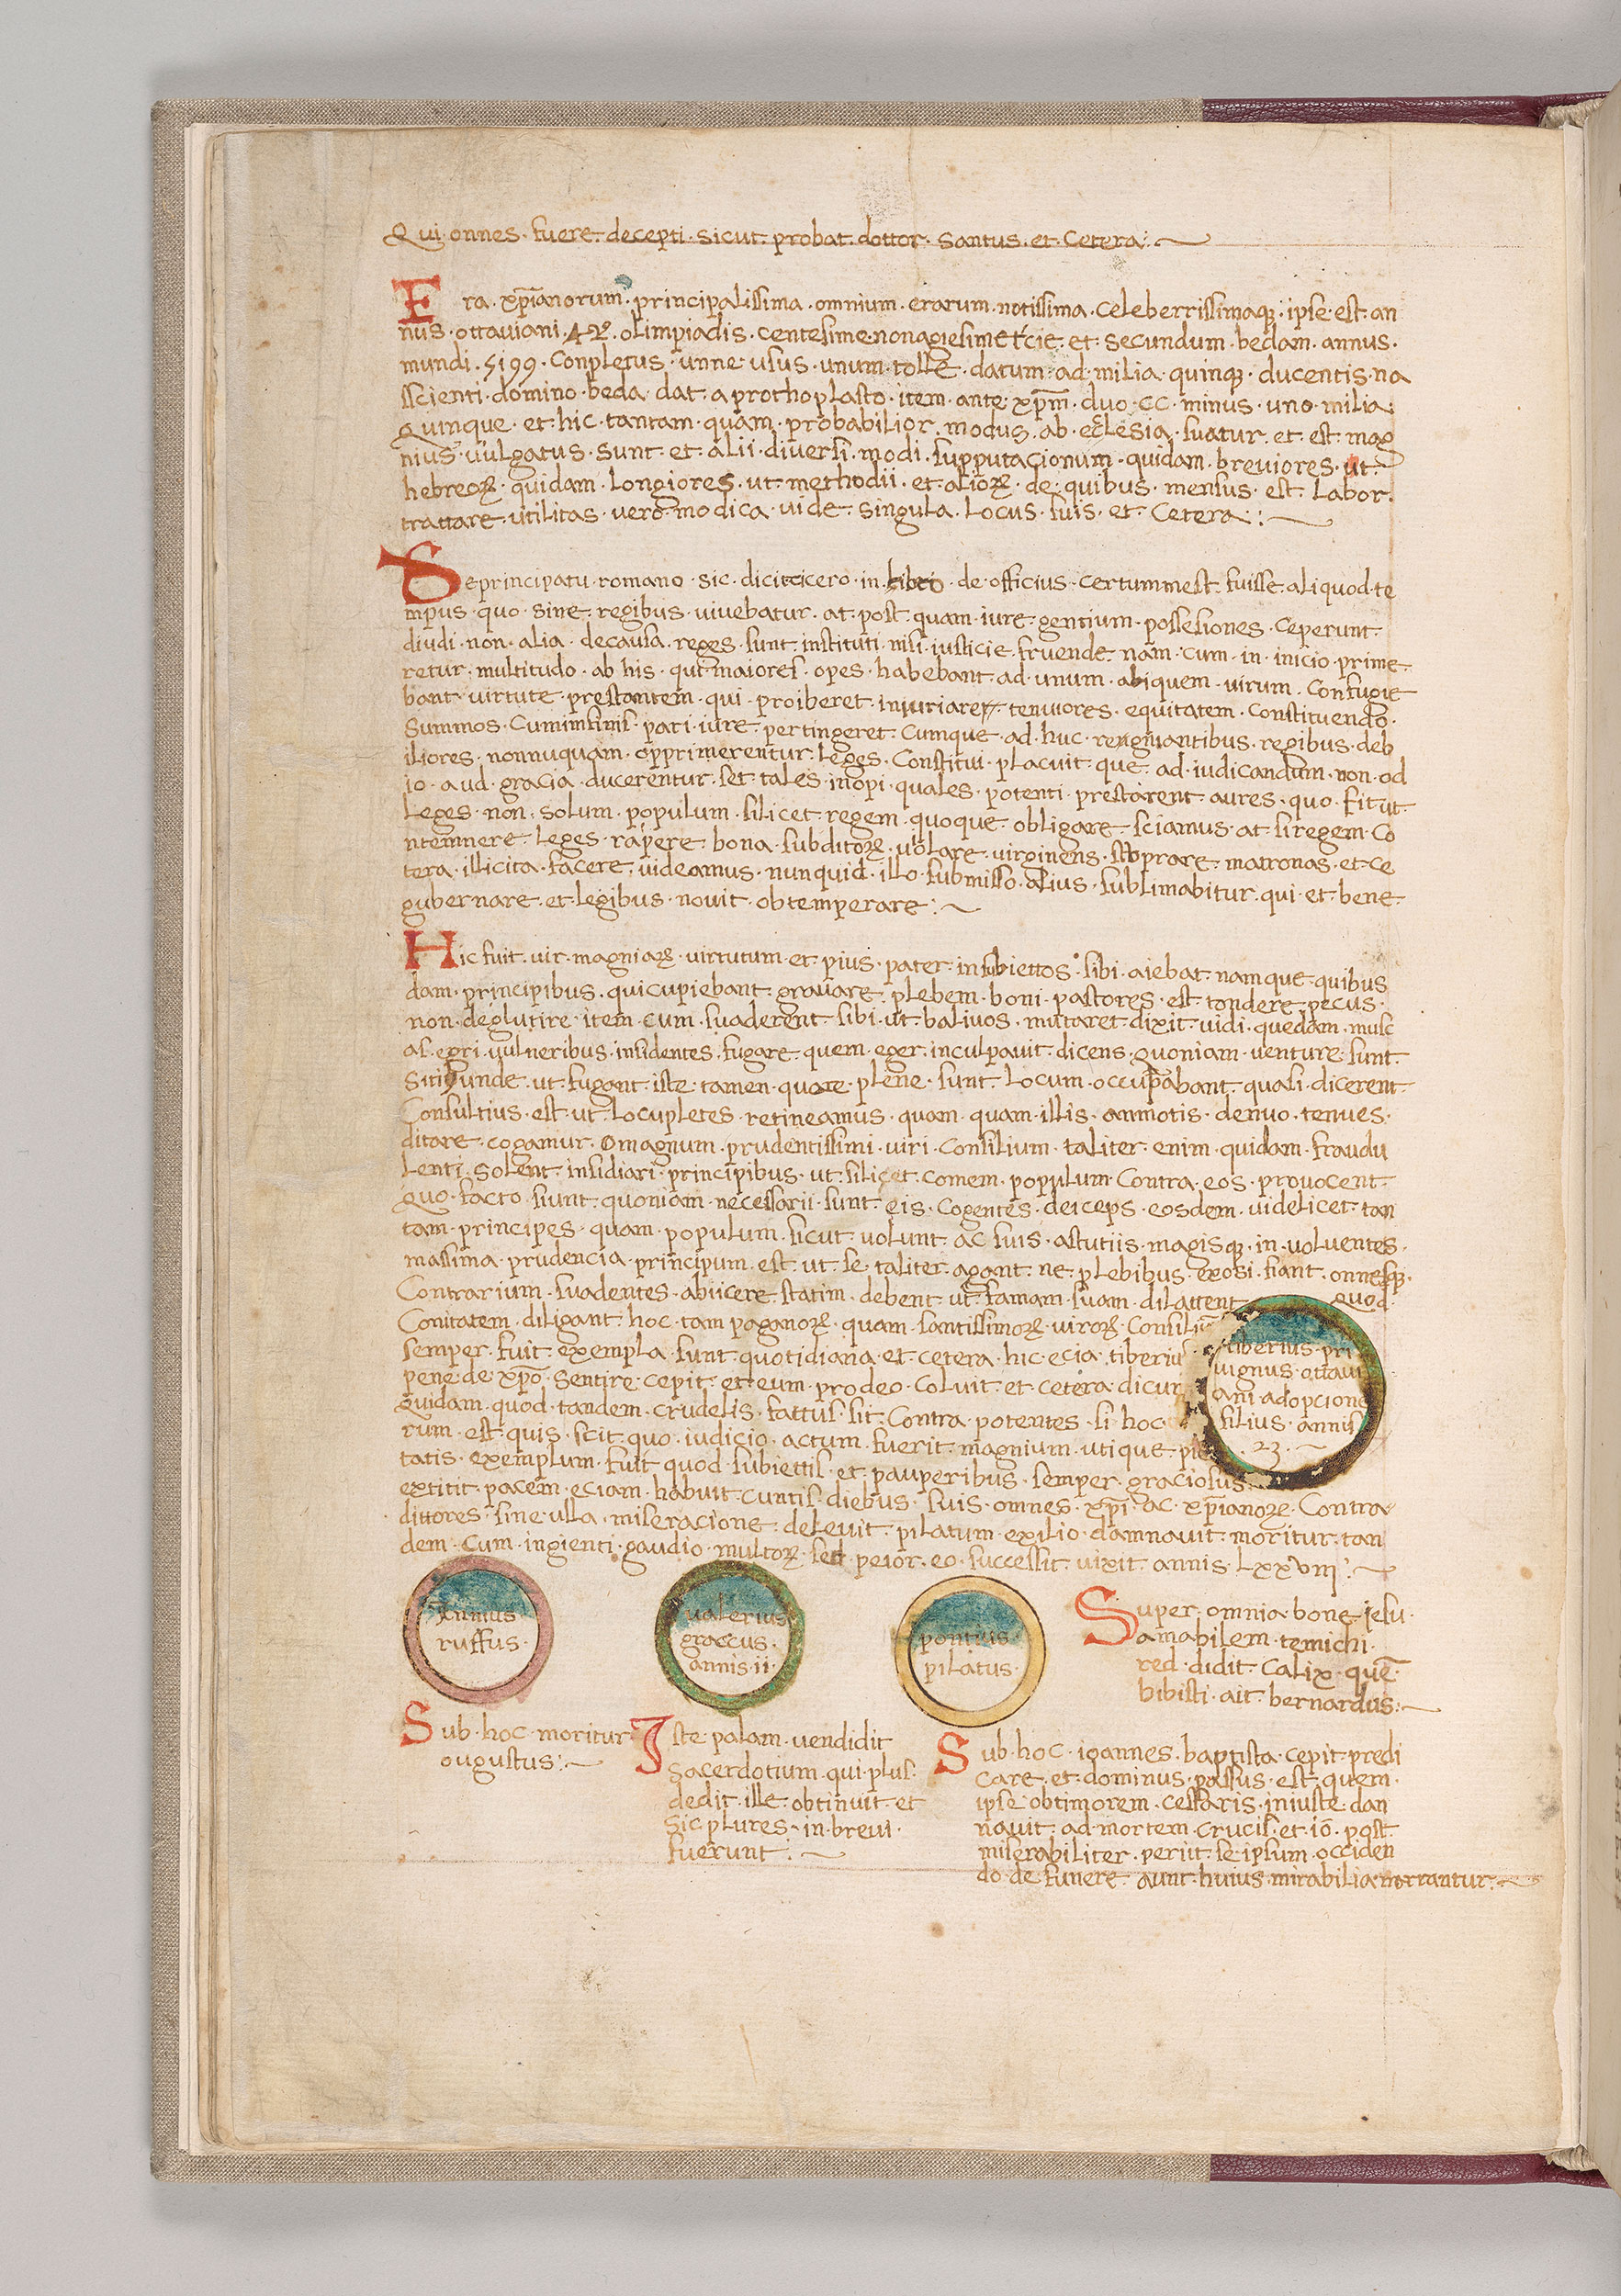 Qui·onnes·fuere·decepti·sicut·probat·dottor·santus·et·Cetera:~
Era·xp̄ianorum·principalissima·omnium·erarum·notissima·Celeberrissimaqꝫ·ipse·est·an
nus·ottaviani·42·olimpiadis·centesime·nonagiesime tˢcie·et·secundum·bedam·annus·
mundi·5199·Conpletus·unne·usus·unum·tolle·datum·ad·milia·quinqꝫ·ducentis·na
sscienti·domino·beda·dat·a prothoplasto·item·ante·xp̄m·duo·CC·minus·uno·milia·
Quinque·et·hic·tantam·quam·probabilior·modus·ab·ecclesia·suatur·et·est·mag
nius·vulgatus·sunt·et·alii·diversi·modi·supputacionum·quidam·breviores·ut·
hebreoꝝ·quidam·longiores·ut·methodii·et·alioꝝ·de·quibus·mensus·est·labor·
trattare·utilitas·vero·modica·vide·singula·locus·suis·et·Cetera:~
De principatu·romano·sic·dicit cicero·in·libro·de·officius·certumm est·fuisse·aliquod·te
mpus·quo·sine·regibus·vivebatur·at·post·quam·iure·gentium·possesiones·ceperunt·
diudi·non·alia·de causa·reges·sunt·instituti·nisi·iusticie·fruende·nam·cum·in·inicio·prime
retur·multitudo·ab·his·qui·maiores·opes·habebant·ad·unum·aliquem·virum·Confugie
bant·virtute·prestantem·qui·proiberet·iniuriare·tenuiores·equitatem·Constituendo·
Summos·Cum infimis·pari·iure·pertingeret·Cumque·ad·huc·rengnantibus·regibus·deb
iliores·nonnuquam·opprimerentur·leges·Constitui·placuit·que·ad·iudicandum·non·od
io·aud·gracia·ducerentur·set·tales·inopi·quales·potenti·prestarent·aures·quo·fit ut·
leges·non·solum·populum·silicet·regem·quoque·obligare·sciamus·at·si regem·Co
ntemnere·leges·rapere·bona·subditoꝝ·violare·virginens·stoprare·matronas·et·ce
tera·illicita·facere·videamus·nunquid·illo·submisso·alius·sublimabitur·qui·et·bene
gubernare·et·legibus·novit·obtemperare:~
Hic fuit·vir·magniaꝝ·virtutum·et·pius·pater·in subiettos·sibi·aiebat·namque·quibus
dam·principibus·qui cupiebant·gravare·plebem·boni·pastores·est·tondere·pecus·
non·deglutire·item·cum·suaderent·sibi·ut·balivos·mutaret·dixit·vidi·quedam·musc
as·egri·vulneribus·insidentes·fugare·quem·eger·inculpavit·dicens·quoniam·venture·sunt·
sitibunde·ut·fugant·iste·tamen·quare·plene·sunt·locum·occupabant·quasi·dicerent
Consultius·est·ut·locupletes·retineamus·quam·quam·illis·ammotis·denuo·tenues·
ditare·cogamur·O magnum·prudentissimi·viri·Consilium·taliter·enim·quidam·fraudu
lenti·solent·insidiari·principibus·ut·silicet·comem·populum·Contra·eos·provocent·
Quo·facto·fiunt·quoniam·necessarii·sunt·eis·Cogentes·deiceps·eosdem·videlicet·tan
tam·principes·quam·populum·sicut·volunt·ac·suis·astutiis·magisqꝫ·in·volventes·
massima·prudencia·principum·est·ut·se·taliter·agant·ne·plebibus·exosi·fiant·onnesqꝫ·
Contrarium·suadentes·abiicere·statim·debent·ut·famam·suam·dilattent·quod·
Conitatem·diligant·hoc·tam paganoꝝ·quam·santissimoꝝ·viroꝝ·Consiliū
semper·fuit·exempla·sunt·quotidiana·et·cetera·hic·ecia·tiberiu
pene·de·xp̄o·sentire·cepit·et·eum·pro deo·Coluit·et·cetera·dicu
quidam·quod·tandem·crudelis·fattus·sit·Contra·potentes·si·hoc
rum·est·quis·scit·quo·iudicio·actum·fuerit·magnium·utique·pie
tatis·exemplum·fuit·quod·subiettis·et·pauperibus·semper·graciosus
extitit·pacem·eciam·habuit·cuntis·diebus·suis·omnes·xp̄i·ac·xp̄ianoꝝ·Contra
dittores·sine·ulla·miseracione·delevit·pilatum·exilio·damnavit·moritur·tan
dem·Cum·ingienti·gaudio·multoꝝ·sed·peior·eo·successit·vixit·annis·LXXVIII:~
tiberius·pri
vignus·ottavi
ani·adopcione
filius·annis
·23·~
Annius
ruffus·
valerius
graccus·
annis·ii·
pontius·
pilatus·
Super·omnia·bone·iesu·
amabilem·te michi·
red·didit·Calix·quē·
bibisti·ait·bernardus:~
Sub·hoc·moritur
ougustus:~
Iste palam·vendidit
Sacerdotium·qui·plus·
dedit·ille·obtinuit·et
sic plures·in·brevi·
fuerunt:~
Sub·hoc·ioannes·baptista·cepit·predi
care·et·dominus·passus·est·quem·
ipse·ob timorem·cessaris·iniuste·dan
navit·ad·mortem·crucis·et·iō·post·
miserabiliter·periit·se ipsum·occiden
do·de·funere·aunt·huius·mirabilia·narrantur:~